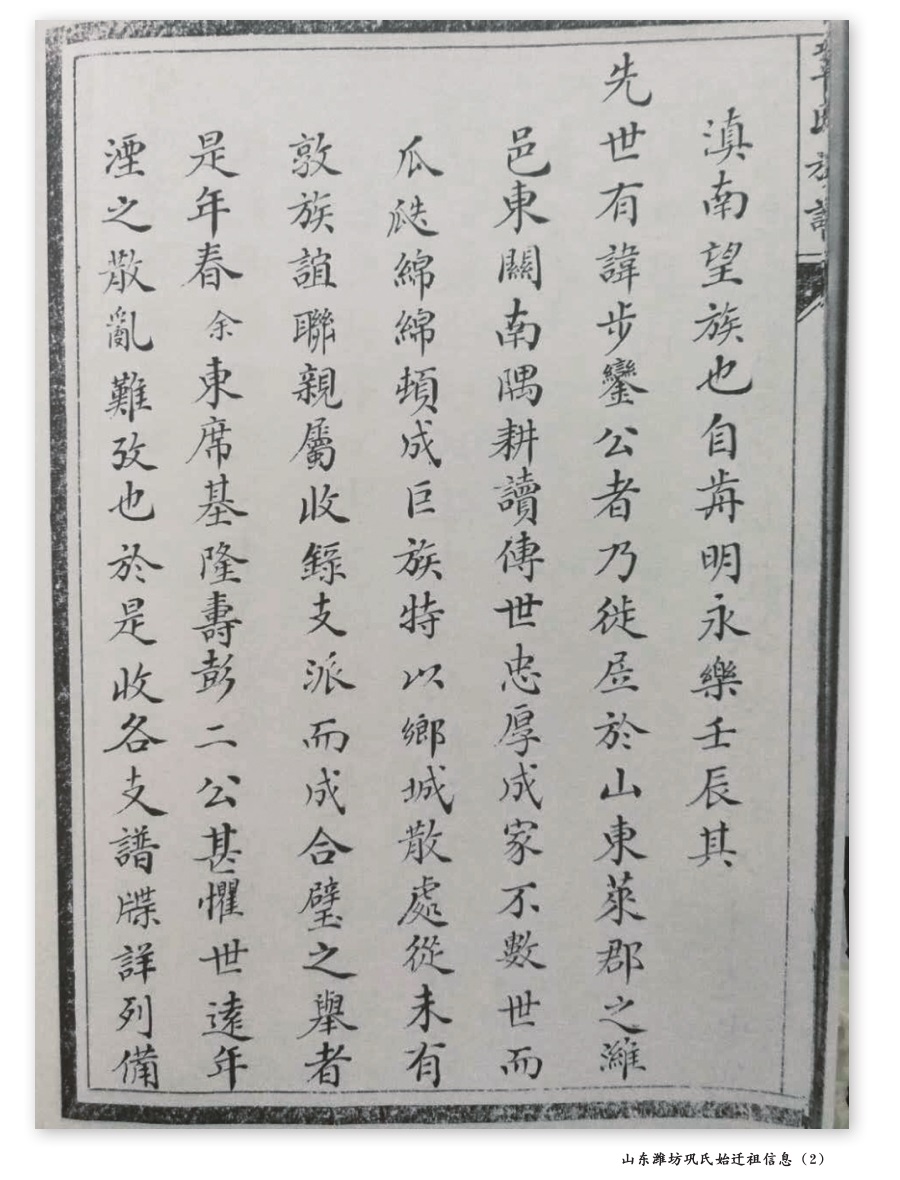 鞏氏族譜
滇南望族也自歬明永樂壬辰其
先世有諱步鑾公者乃徙居於山東萊郡之濰
邑東關南隅耕讀傳世忠厚成家不數世而
瓜瓞綿綿頓成巨族特以鄉城散處從未有
敦族誼聯親屬收錄支派而成合璧之舉者
是年春余東席基隆壽彭二公甚懼世遠年
湮之散亂難攷也於是收各支譜牒詳列備
山东潍坊巩氏始迁祖信息（2）